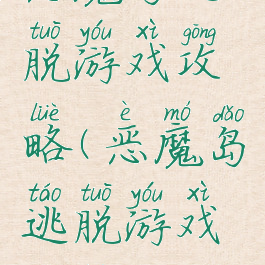 tuō yóu xì gōng
脱游戏攻
lüè è mó dǎo
略(恶魔岛
táo tuō yóu xì
逃脱游戏